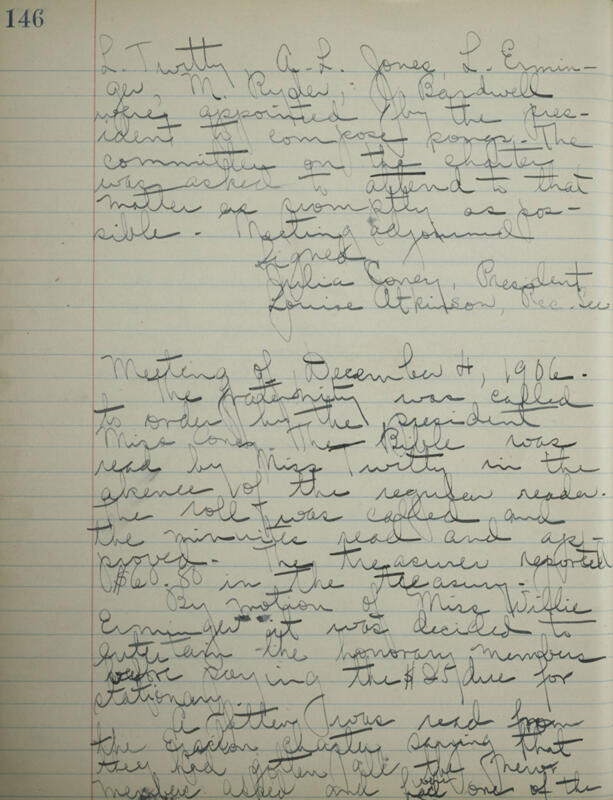 146
L. Twitty, A. L. Jones, L. Ermin-
ger, M. Ryder, J. Bardwell
were appointed by the pres-
ident to compose songs. The
committee on the charter
was asked to attend to that
matter as promptly as pos-
sible. Meeting adjourned
Signed
Julia Coney, President
Louise Atkinson, Rec. Sec
Meeting of December 4, 1906.
The fraternity was called
to order by the president
Miss Coney. The Bible was
read by Miss Twitty in the
absence of the regular reader.
The roll was called and
the minutes read and ap-
proved. The treasurer reported
in the treasury.
By motion of Miss Willie
Erminger it was decided to
entertain the honorary members
before paying the $25 due for
stationary.
A letter was read from
the Epsilon chapter saying that
they had gotten all the new
members asked and had one of the